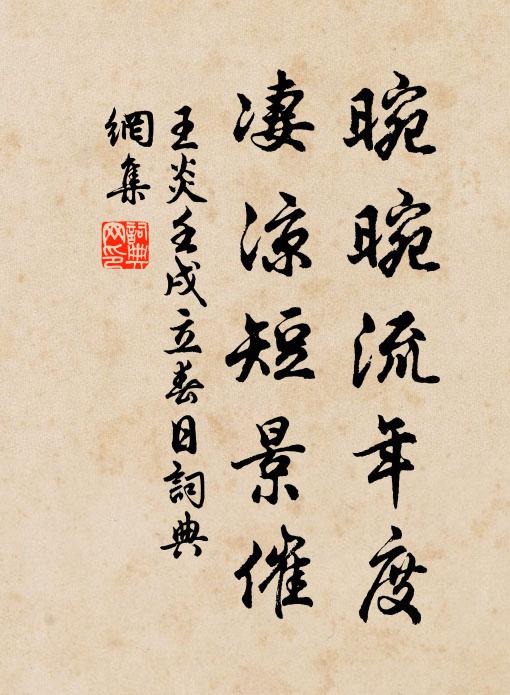 晼晼流年度
凄涼短景催
王炎壬戌立春日詞典
網集
詞典网印